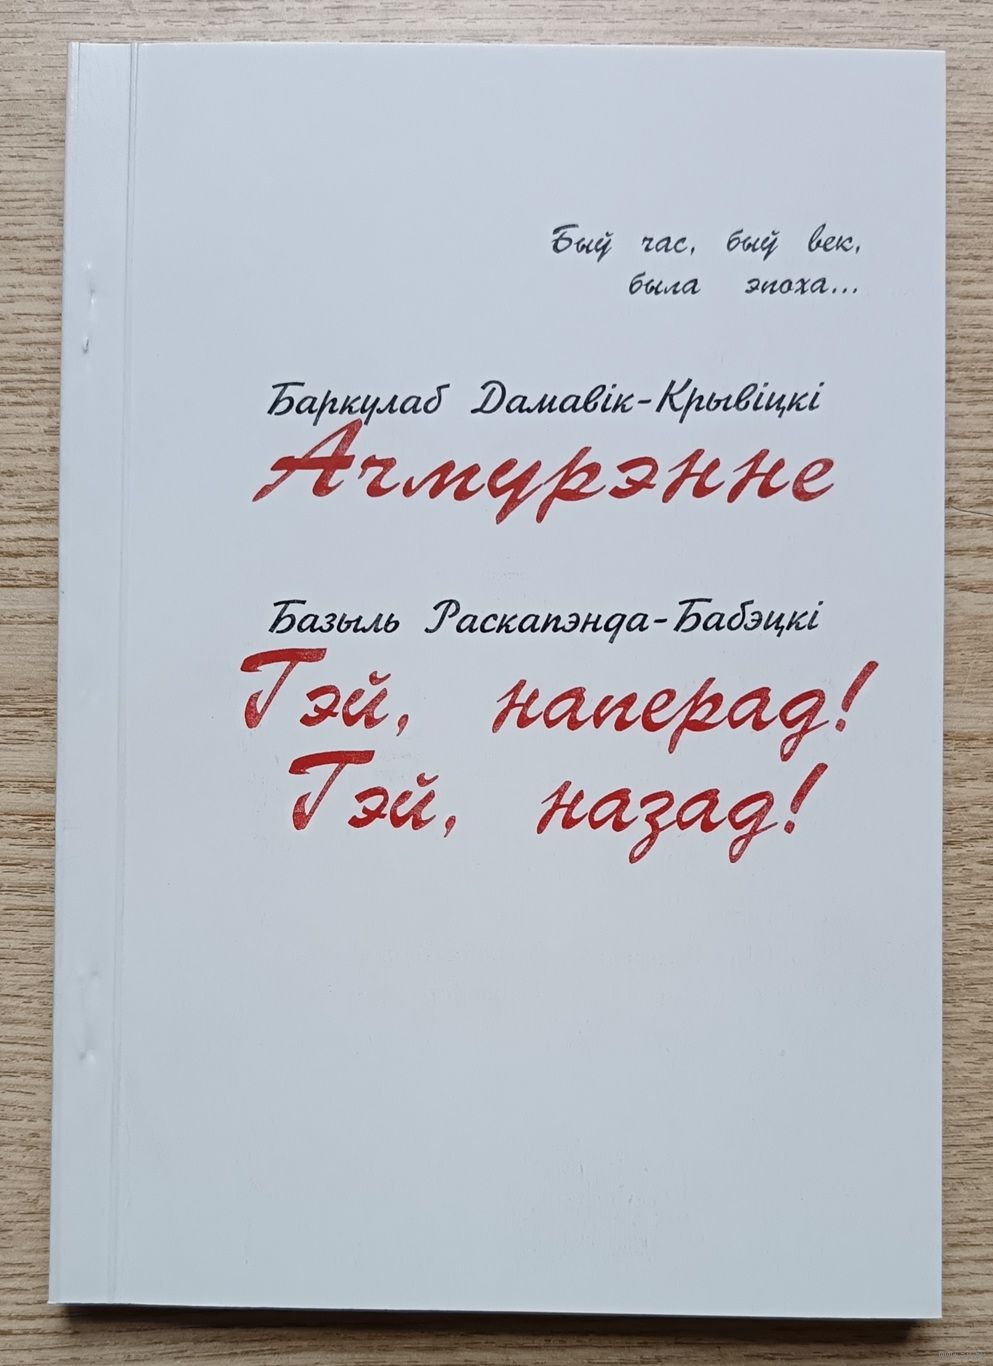 Быў час, быў век,
была эпоха...
Баркулаб Дамавік-Крывіцкі
Ачмурэнне
Базыль Раскапэнда-Бабэцкі
Гэй, наперад!
Гэй, назад!